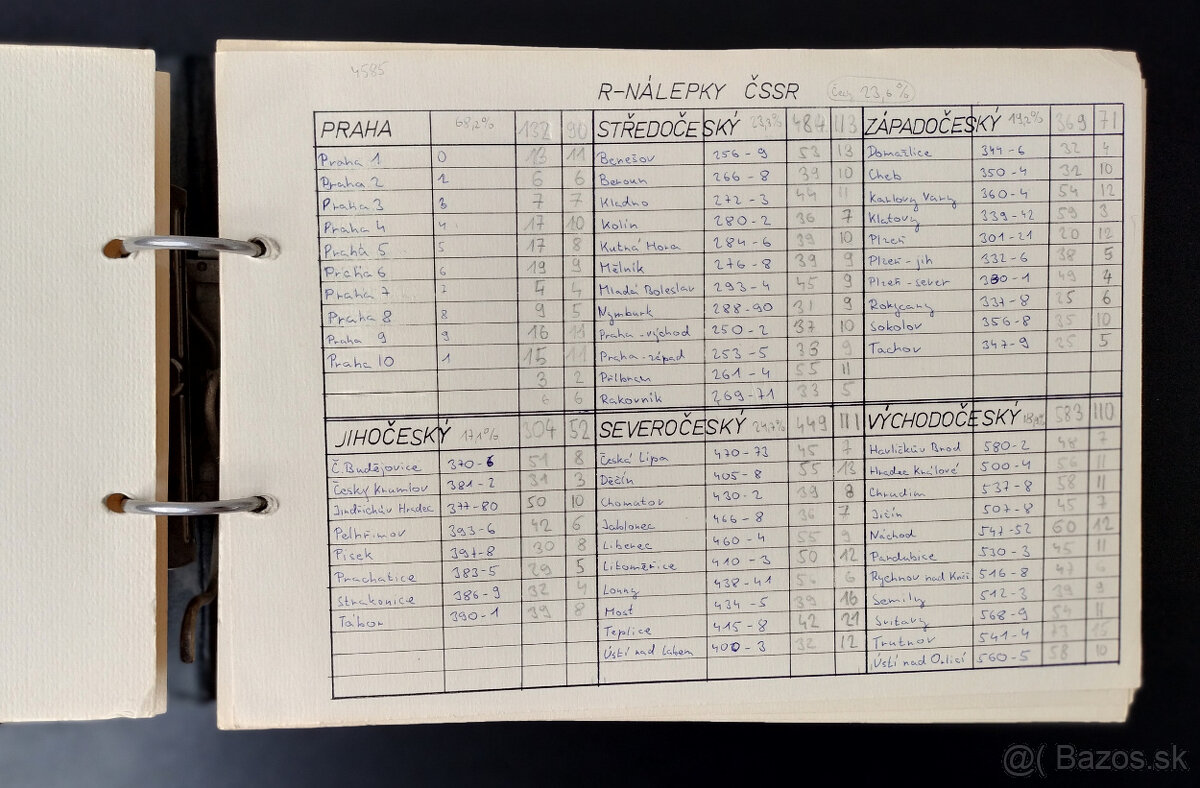 4585
R-NÁLEPKY ČSSR
Češi 23,6%
PRAHA 68,2% 132 90
Praha 1 0 13 11
Praha 2 2 6 6
Praha 3 3 7 7
Praha 4 4 17 10
Praha 5 5 17 8
Praha 6 6 19 9
Praha 7 7 4 4
Praha 8 8 9 5
Praha 9 9 16 11
Praha 10 1 15 11
3 2
6 6
STŘEDOČESKÝ 23,3% 484 113
Benešov 256-9 53 13
Beroun 266-8 39 10
Kladno 272-3 44 11
Kolín 280-2 36 7
Kutná Hora 284-6 39 10
Mělník 276-8 39 9
Mladá Boleslav 293-4 45 9
Nymburk 288-90 31 9
Praha-východ 250-2 37 10
Praha-západ 253-5 33 9
Příbram 261-4 55 11
Rakovník 269-71 33 5
ZÁPADOČESKÝ 19,2% 369 71
Domažlice 344-6 32 4
Cheb 350-4 32 10
Karlovy Vary 360-4 54 12
Klatovy 339-42 59 3
Plzeň 301-21 20 12
Plzeň-jih 332-6 38 5
Plzeň-sever 330-1 49 4
Rokycany 337-8 25 6
Sokolov 356-8 35 10
Tachov 347-9 25 5
JIHOČESKÝ 17,1% 304 52
Č. Budějovice 370-6 51 8
Český Krumlov 381-2 31 3
Jindřichův Hradec 377-80 50 10
Pelhřimov 393-6 42 6
Písek 397-8 30 8
Prachatice 383-5 29 5
Strakonice 386-9 32 4
Tábor 390-1 39 8
SEVEROČESKÝ 24,7% 449 111
Česká Lípa 470-73 45 7
Děčín 405-8 55 13
Chomutov 430-2 39 8
Jablonec 466-8 36 7
Liberec 460-4 55 9
Litoměřice 410-3 50 12
Louny 438-41 6
Most 434-5 39 16
Teplice 415-8 42 21
Ústí nad Labem 400-3 32 12
VÝCHODOČESKÝ 18,9% 583 110
Havlíčkův Brod 580-2 48 7
Hradec Králové 500-4 56 11
Chrudim 537-8 58 11
Jičín 507-8 45 7
Náchod 547-52 60 12
Pardubice 530-3 45 11
Rychnov nad Kněž 516-8 47 6
Semily 512-3 39 9
Svitavy 568-9 54 11
Trutnov 541-4 73 15
Ústí nad Orlicí 560-5 58 10
@( Bazos.sk